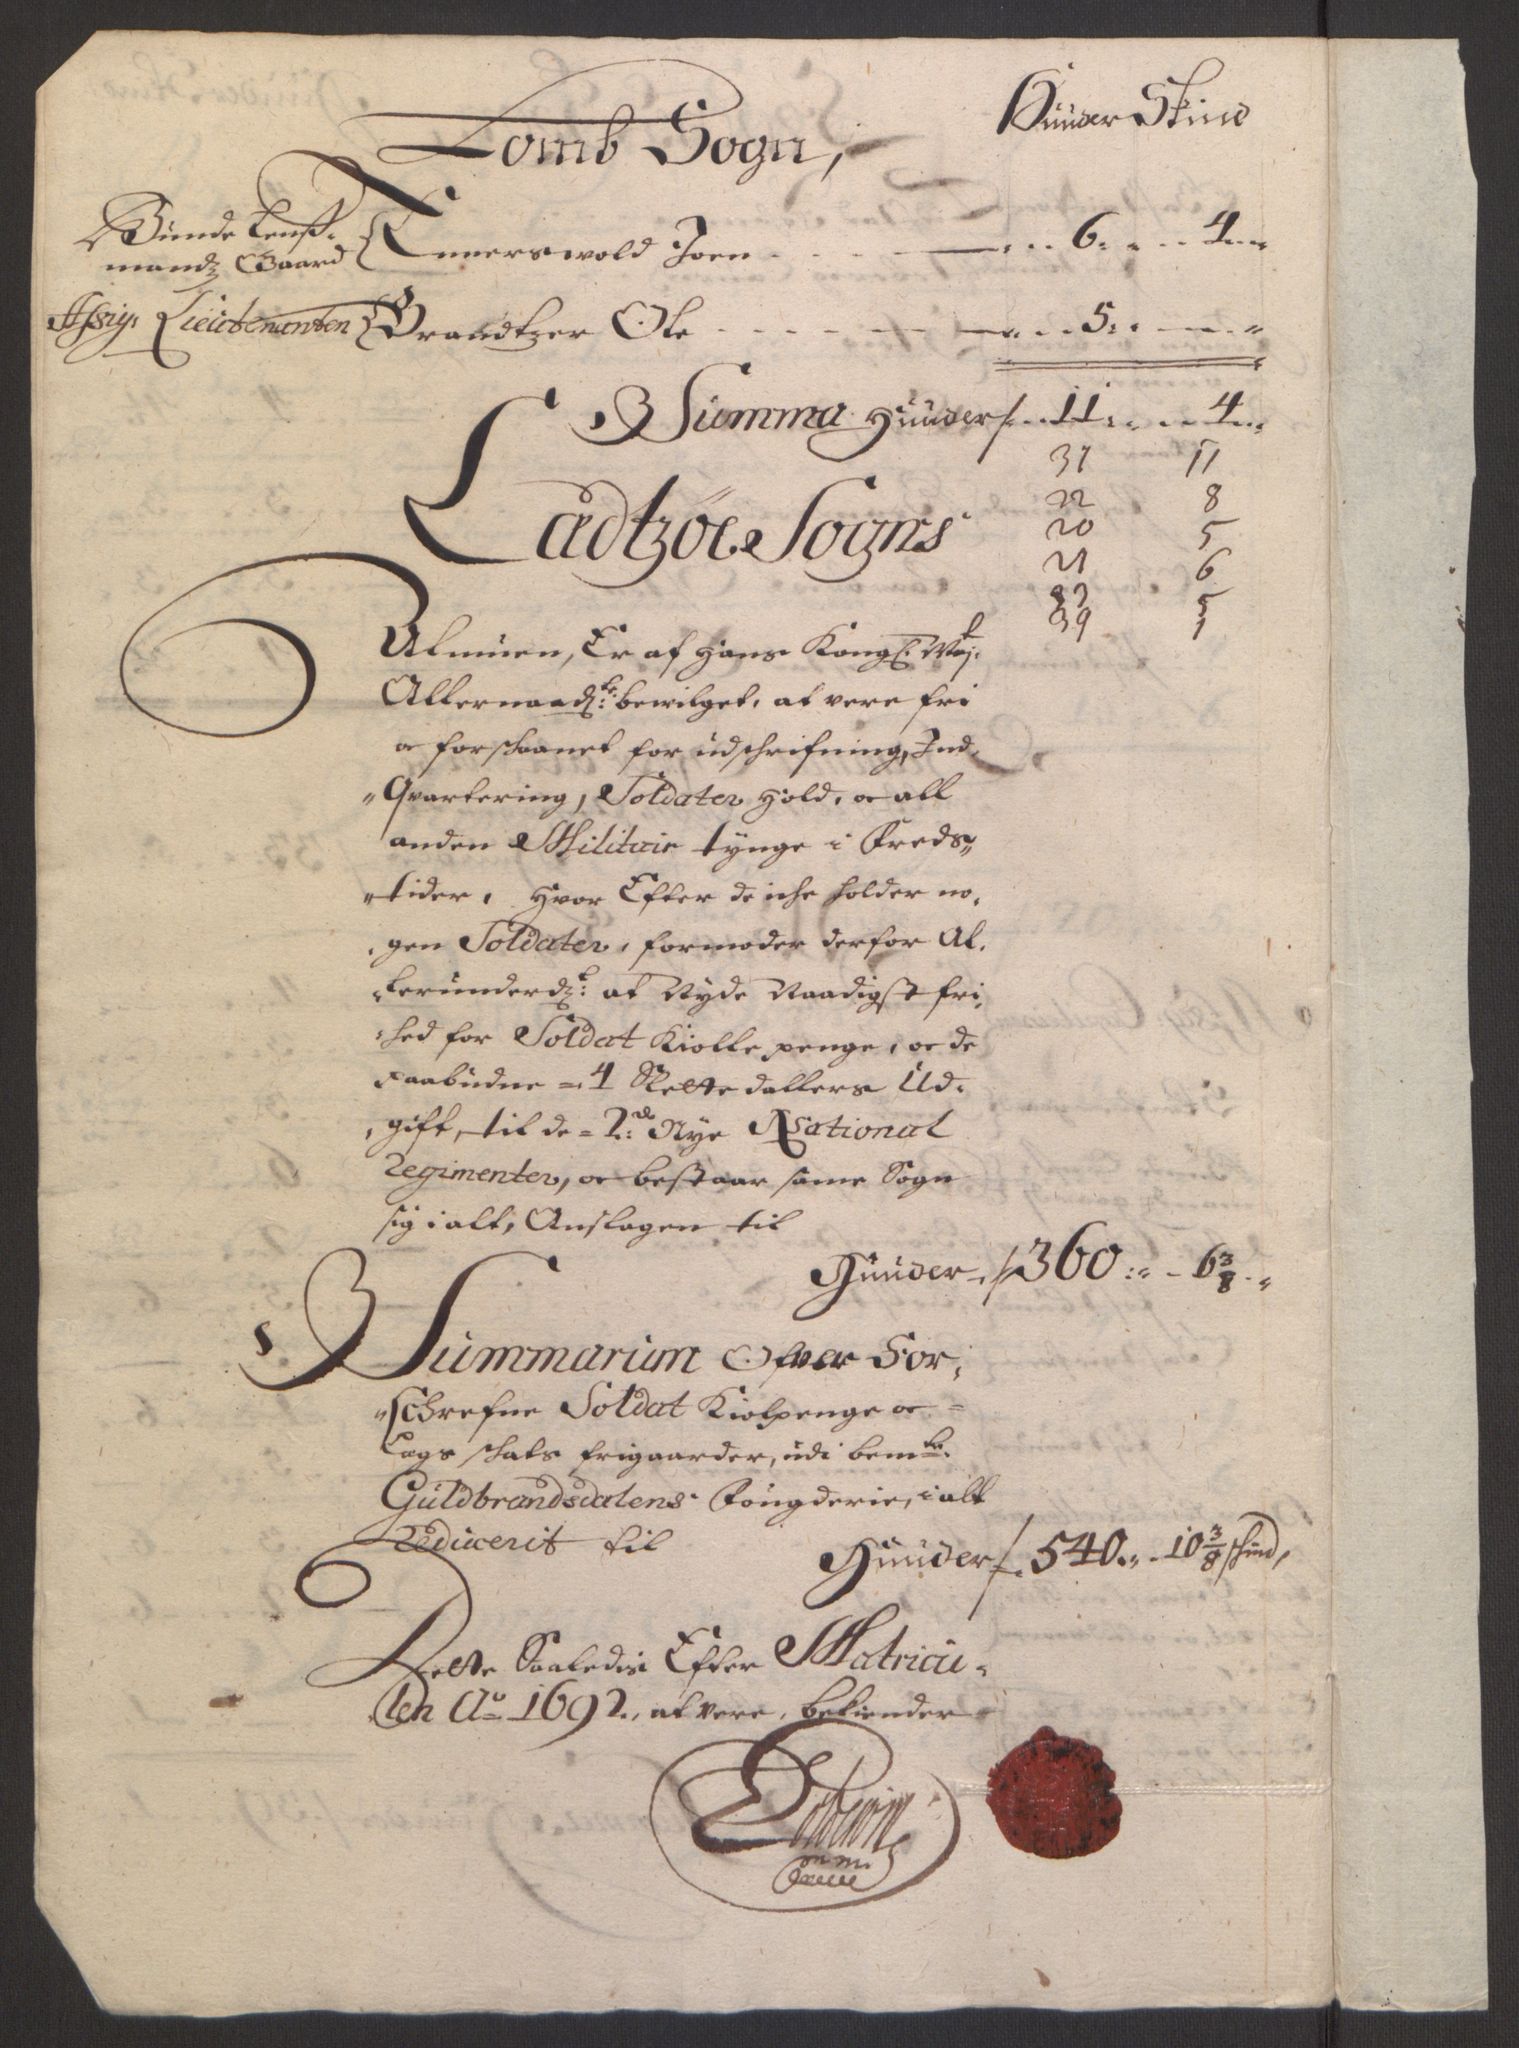 Lomb Sogn,
Hunder Skind
Bunde Lenß-
mandz Gaard
Ennerswold Joen - - - 6 : - - 4 -
Assig. Lieutenanten Brandtzer Ole - - - 5 : - -
Summa Hunder / 11 : - - 4 -
37 11
22 8
20 5
21 6
39 1
Ladtzöe Sogns
Almuen, Er af Hans Kongl Maj:
Allernaad: bewilget, at vere fri
oc forschaanet for udschrifning, Ind-
Qvartering, Soldater Hold, oc all
anden Militair tynge i Freds-
tider, Hvor Efter de iche holder no-
gen Soldater, formoder derfor Al-
lerunderd: at Nyde Naadigst fri-
hed for Soldat Kiolle penge, oc de
paabudne = 4 Slette dallers Ud-
gift, til de = 2: Nye National
Regimenter, oc bestaar same Sogn
sig i alt, Anslagen til
Hunder / 360 : - 6 3/8 -
Summarum Ofver For-
schrefne Soldat Kiolpenge oc
Lags schats frigaarder, udi bemte
Guldbrandsdalens Fougderie, i alt
Reducerit til
Hunder / 540 - 10 3/8 schind,
Dette Saaledis Efter Matricu-
len Ao 1692, at vere, bekiender